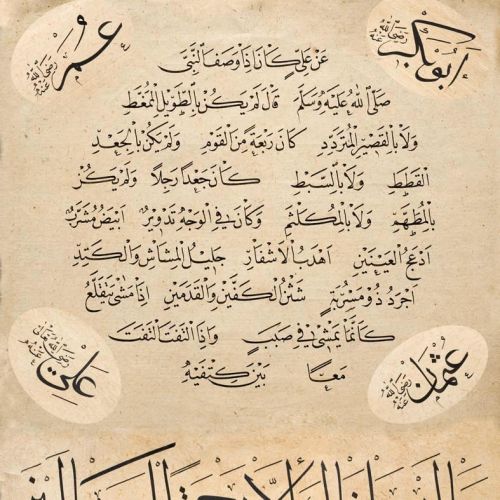 أبو بكر رضي الله عنه
عمر رضي الله عنه
عن علي كان إذا وصف النبي
صلى الله عليه وسلم قال لم يكن بالطويل الممغط
ولا بالقصير المتردد كان ربعة من القوم ولم يكن بالجعد
القطط ولا بالسبط كان جعدا رجلا ولم يكن
بالمطهم ولا بالمكلثم وكان في الوجه تدوير أبيض مشرب
أدعج العينين أهدب الأشفار جليل المشاش والكتد
أجرد ذو مسربة شثن الكفين والقدمين إذا مشى يتقلع
كأنما يمشي في صبب وإذا التفت التفت
معا بين كتفيه
عثمان رضي الله عنه
علي رضي الله تعالى عنه